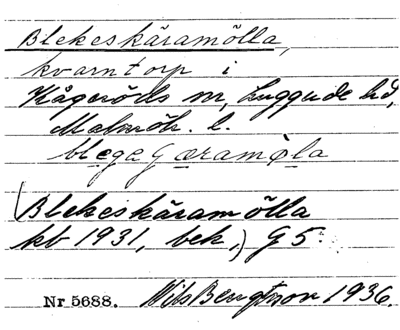 Blekeskäramölla,
kvarntorp i
Kågeröds sn, Luggude hd,
Malmöh. l.
blegaGæramøla
(Blekeskäramölla
kb 1931, bek.) G5:
Nr 5688. Nils Bengtsson 1936.